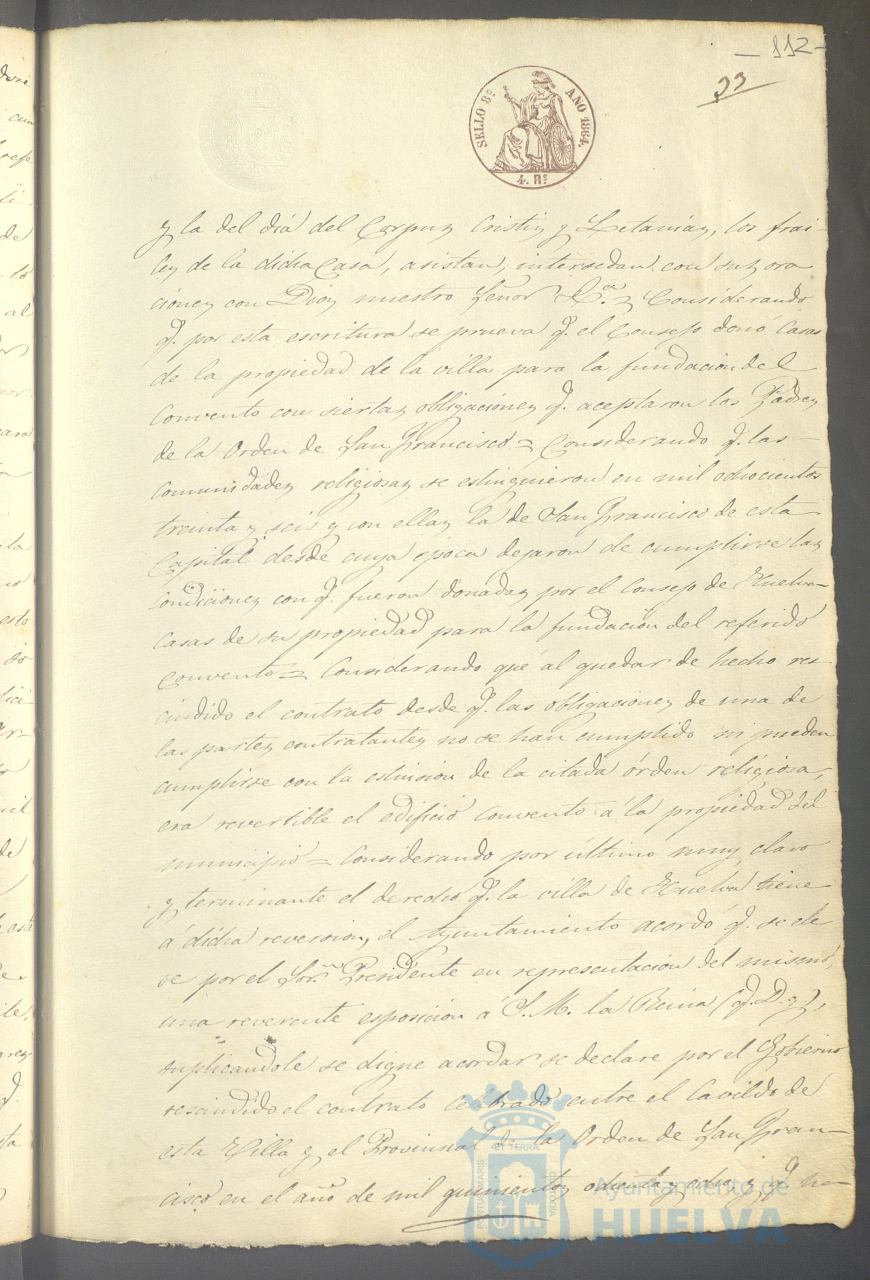 - 112 -
33
SELLO 8º AÑO 1864.
4. Rˢ
y la del diá del Corpus Cristi y Letanías, los frai-
les de la dicha Casa, asistan, intersedan con sus ora
ciones con Dios nuestro Señor &.ª = Considerando
q. por esta escritura se prueva q. el Consejo donó Casas
de la propiedad de la villa para la fundacion del
Convento con siertas obligaciones q. aceptaron los Padres
de la Orden de San Francisco = Considerando q. las
comunidades religiosas se estinguieron en mil ochocientos
treinta y seis y con ellas la de San Francisco de esta
Capital desde cuya época dejaron de cumplirse las
condiciones con q. fueron donadas por el Consejo de Huelva
Casas de su propiedad para la fundacion del referido
Convento = Considerando que al quedar de hecho res-
cindido el contrato desde q. las obligaciones de una de
las partes contratantes no se han cumplido ni pueden
cumplirse con la estinsion de la citada órden religiosa,
era revertible el edificio convento á la propiedad del
municipio = Considerando por último muy claro
y terminante el derecho q. la villa de Huelva tiene
á dicha reversion, el Ayuntamiento acordó q. se ele
ve por el Sor. Presidente en representacion del mismo,
una reverente esposicion á S. M. la Reina (q. D. g.),
suplicandole se digne acordar se declare por el Gobierno
rescindido el contrato celebrado entre el Cavildo de
esta Villa y el Provinsial de la Orden de San Fran-
cisco en el año de mil quinientos ochenta y ocho, y q. ha-
PORTUS MARIS ET TERRÆ CUSTODIA
Ayuntamiento de
HUELVA